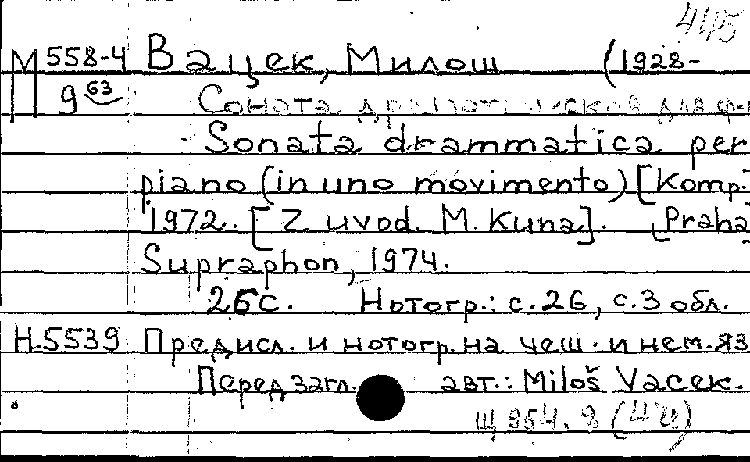 4415
М 558-4 Вацек, Милош (1928-
9 63 Соната драматическая для ф-
Sonata drammatica per
piano (in uno movimento) [Komp.]
1972. [Z. uvod. M. Kuna]. [Praha]
Supraphon, 1974.
26 с. Нотогр.: с. 26, с. 3 обл.
Н.5539 Предисл. и нотогр. на чеш. и нем. яз
Перед загл. авт.: Miloš Vacek.
Щ 954.9 (4Ч)